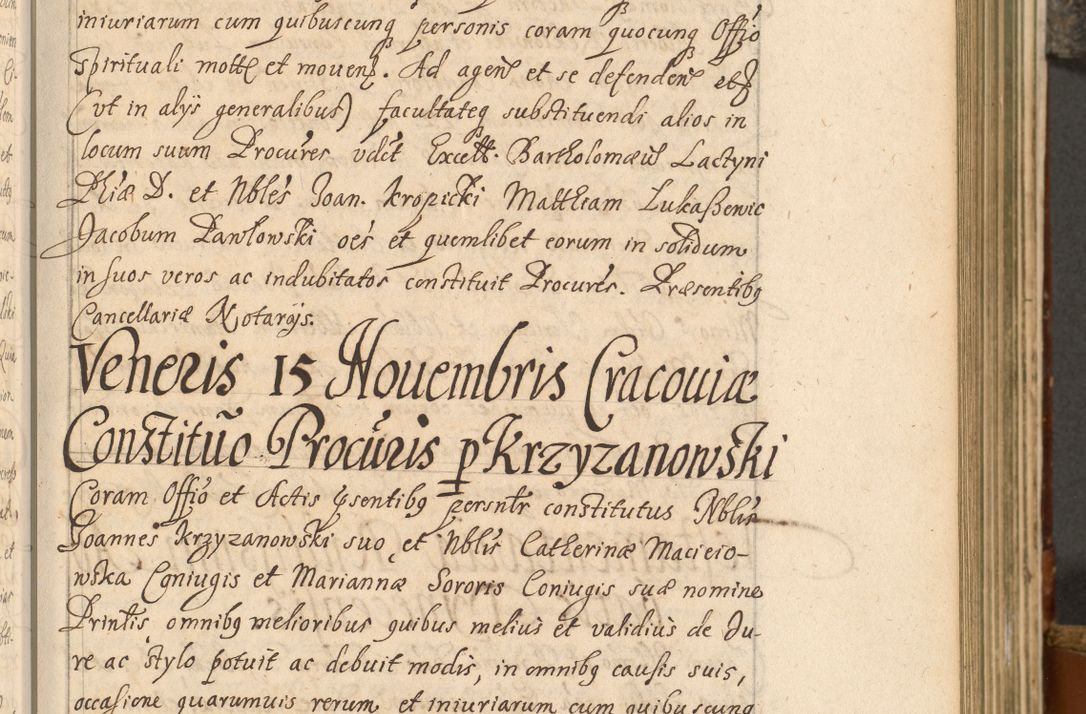 iniuriarum cum quibuscunq personis coram quocunq Offo
Spirituali mott et mouen. Ad agen et se defenden etc
(vt in alys generalibus) facultateq substituendi alios in
locum suum Procures vdet Excell. Bartholomæu Lactyni
Phiæ D. et Nbles Joan. Kropicki Mattheam Lukaßewic
Jacobum Pawlowski oes et quemlibet eorum in solidum
in suos veros ac indubitatos constituit Procures. Præsentibq
Cancellariæ Notarÿs.
Veneris 15 Nouembris Cracouiæ
Constituo Procuris p Krzyzanowski
Coram Offo et Actis psentibq persntr constitutus Nblis
Joannes Krzyzanowski suo et Nblis Catherinæ Macieio-
wska Coniugis et Mariannæ Sororis Coniugis suæ nomine
Printis omnibq melioribus quibus melius et validius de Ju-
re ac stylo potuit ac debuit modis, in omnibq causis suis,
occasione quarumuis rerum et iniuriarum cum quibuscunq